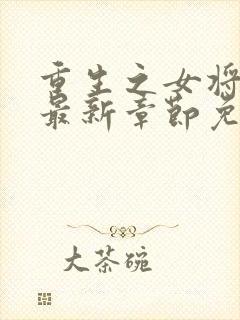 重生之女将
最新章节免
大茶碗